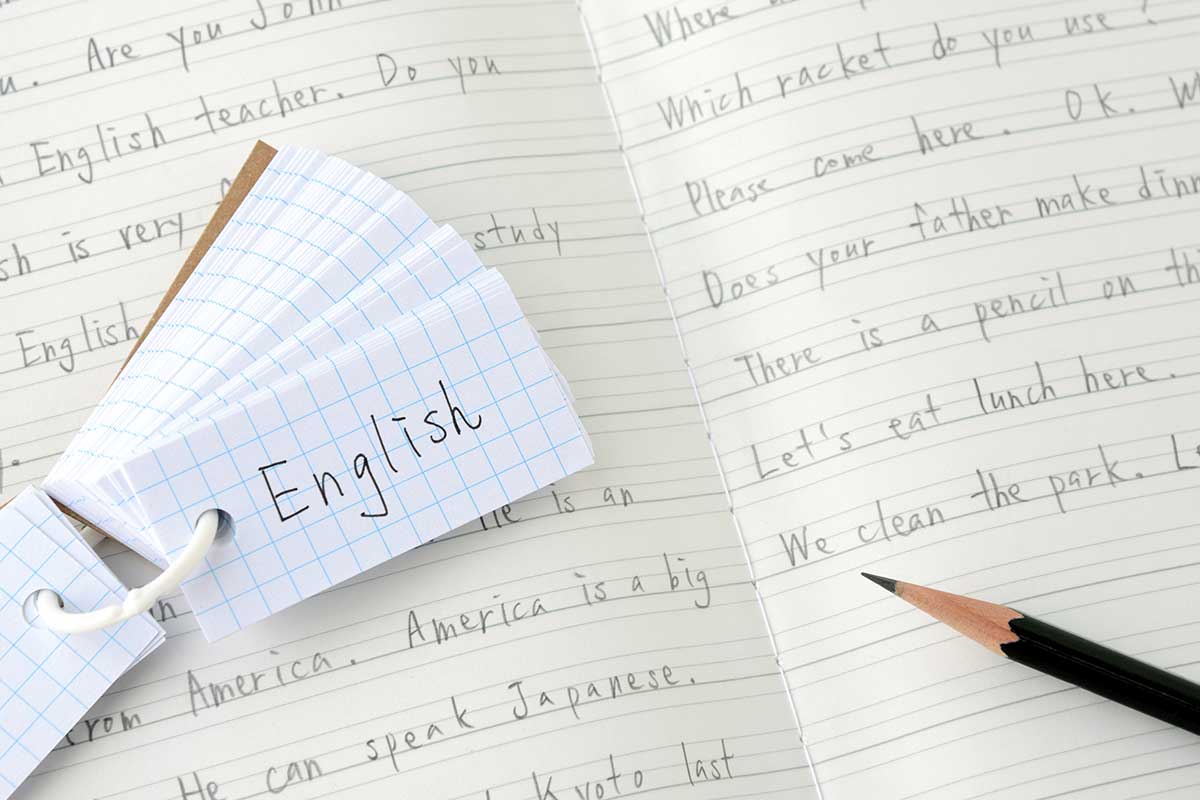 Are you John
English teacher. Do you
is very
study
English
English
He is an
America. America is a big
from
He can speak Japanese.
Kyoto last
Where
Which racket do you use?
Please come here. Ok.
Does your father make
There is a pencil on
Let's eat lunch here.
We clean the park.